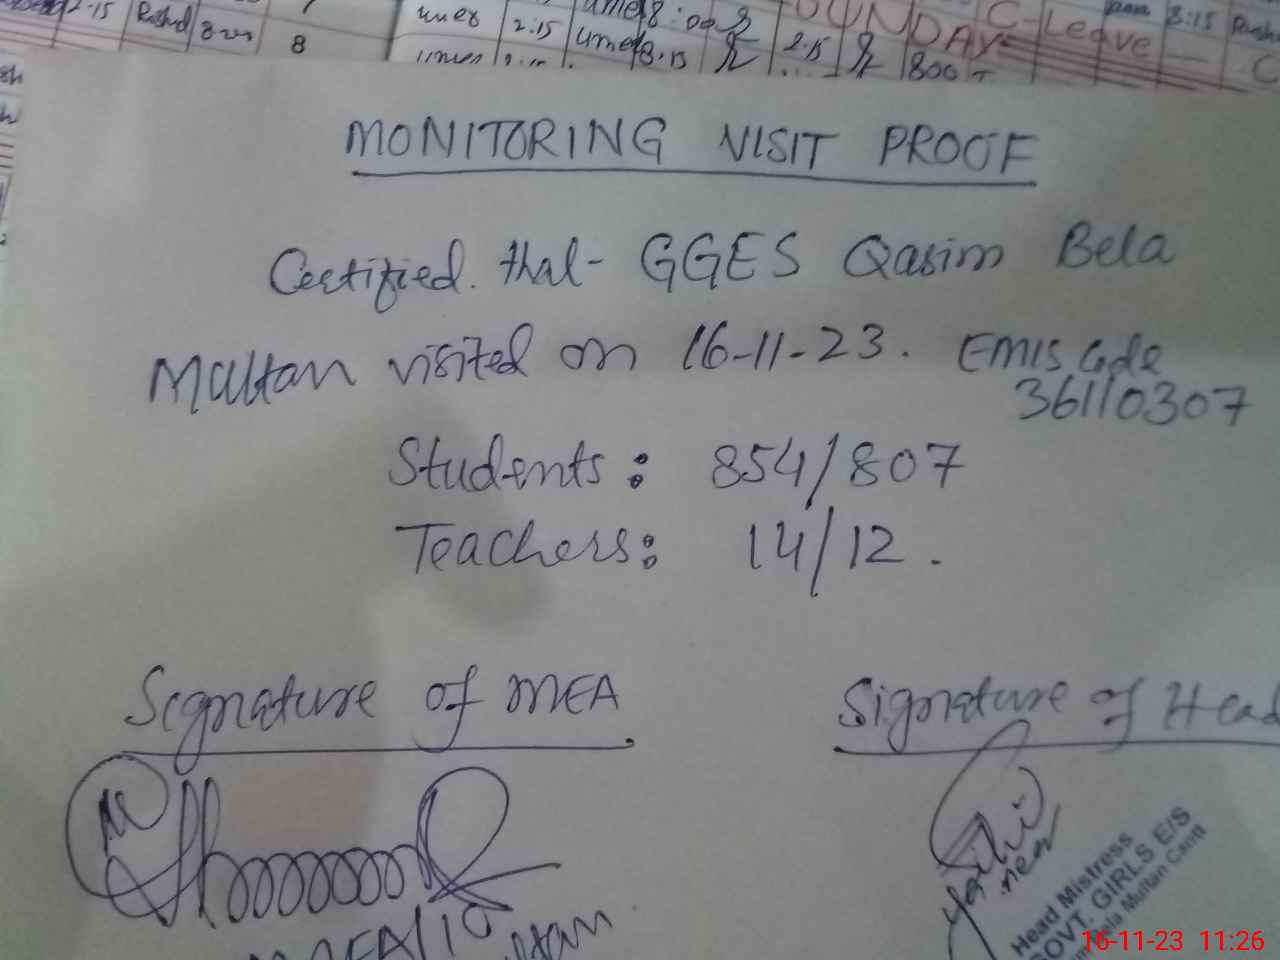 2-15 Rashid 8
8
umer 2:15 umer 8:00 SUNDAY C-Leave 8:15
umer 8.15 2.15 800
MONITORING VISIT PROOF
Certified. that- GGES Qasim Bela
Multan visited on 16-11-23. EMIS Code
36110307
Students: 854/807
Teachers: 14/12.
Signature of MEA
Signature of Head
Head Mistress
GOVT. GIRLS E/S
Bela Multan Cantt
16-11-23 11:26